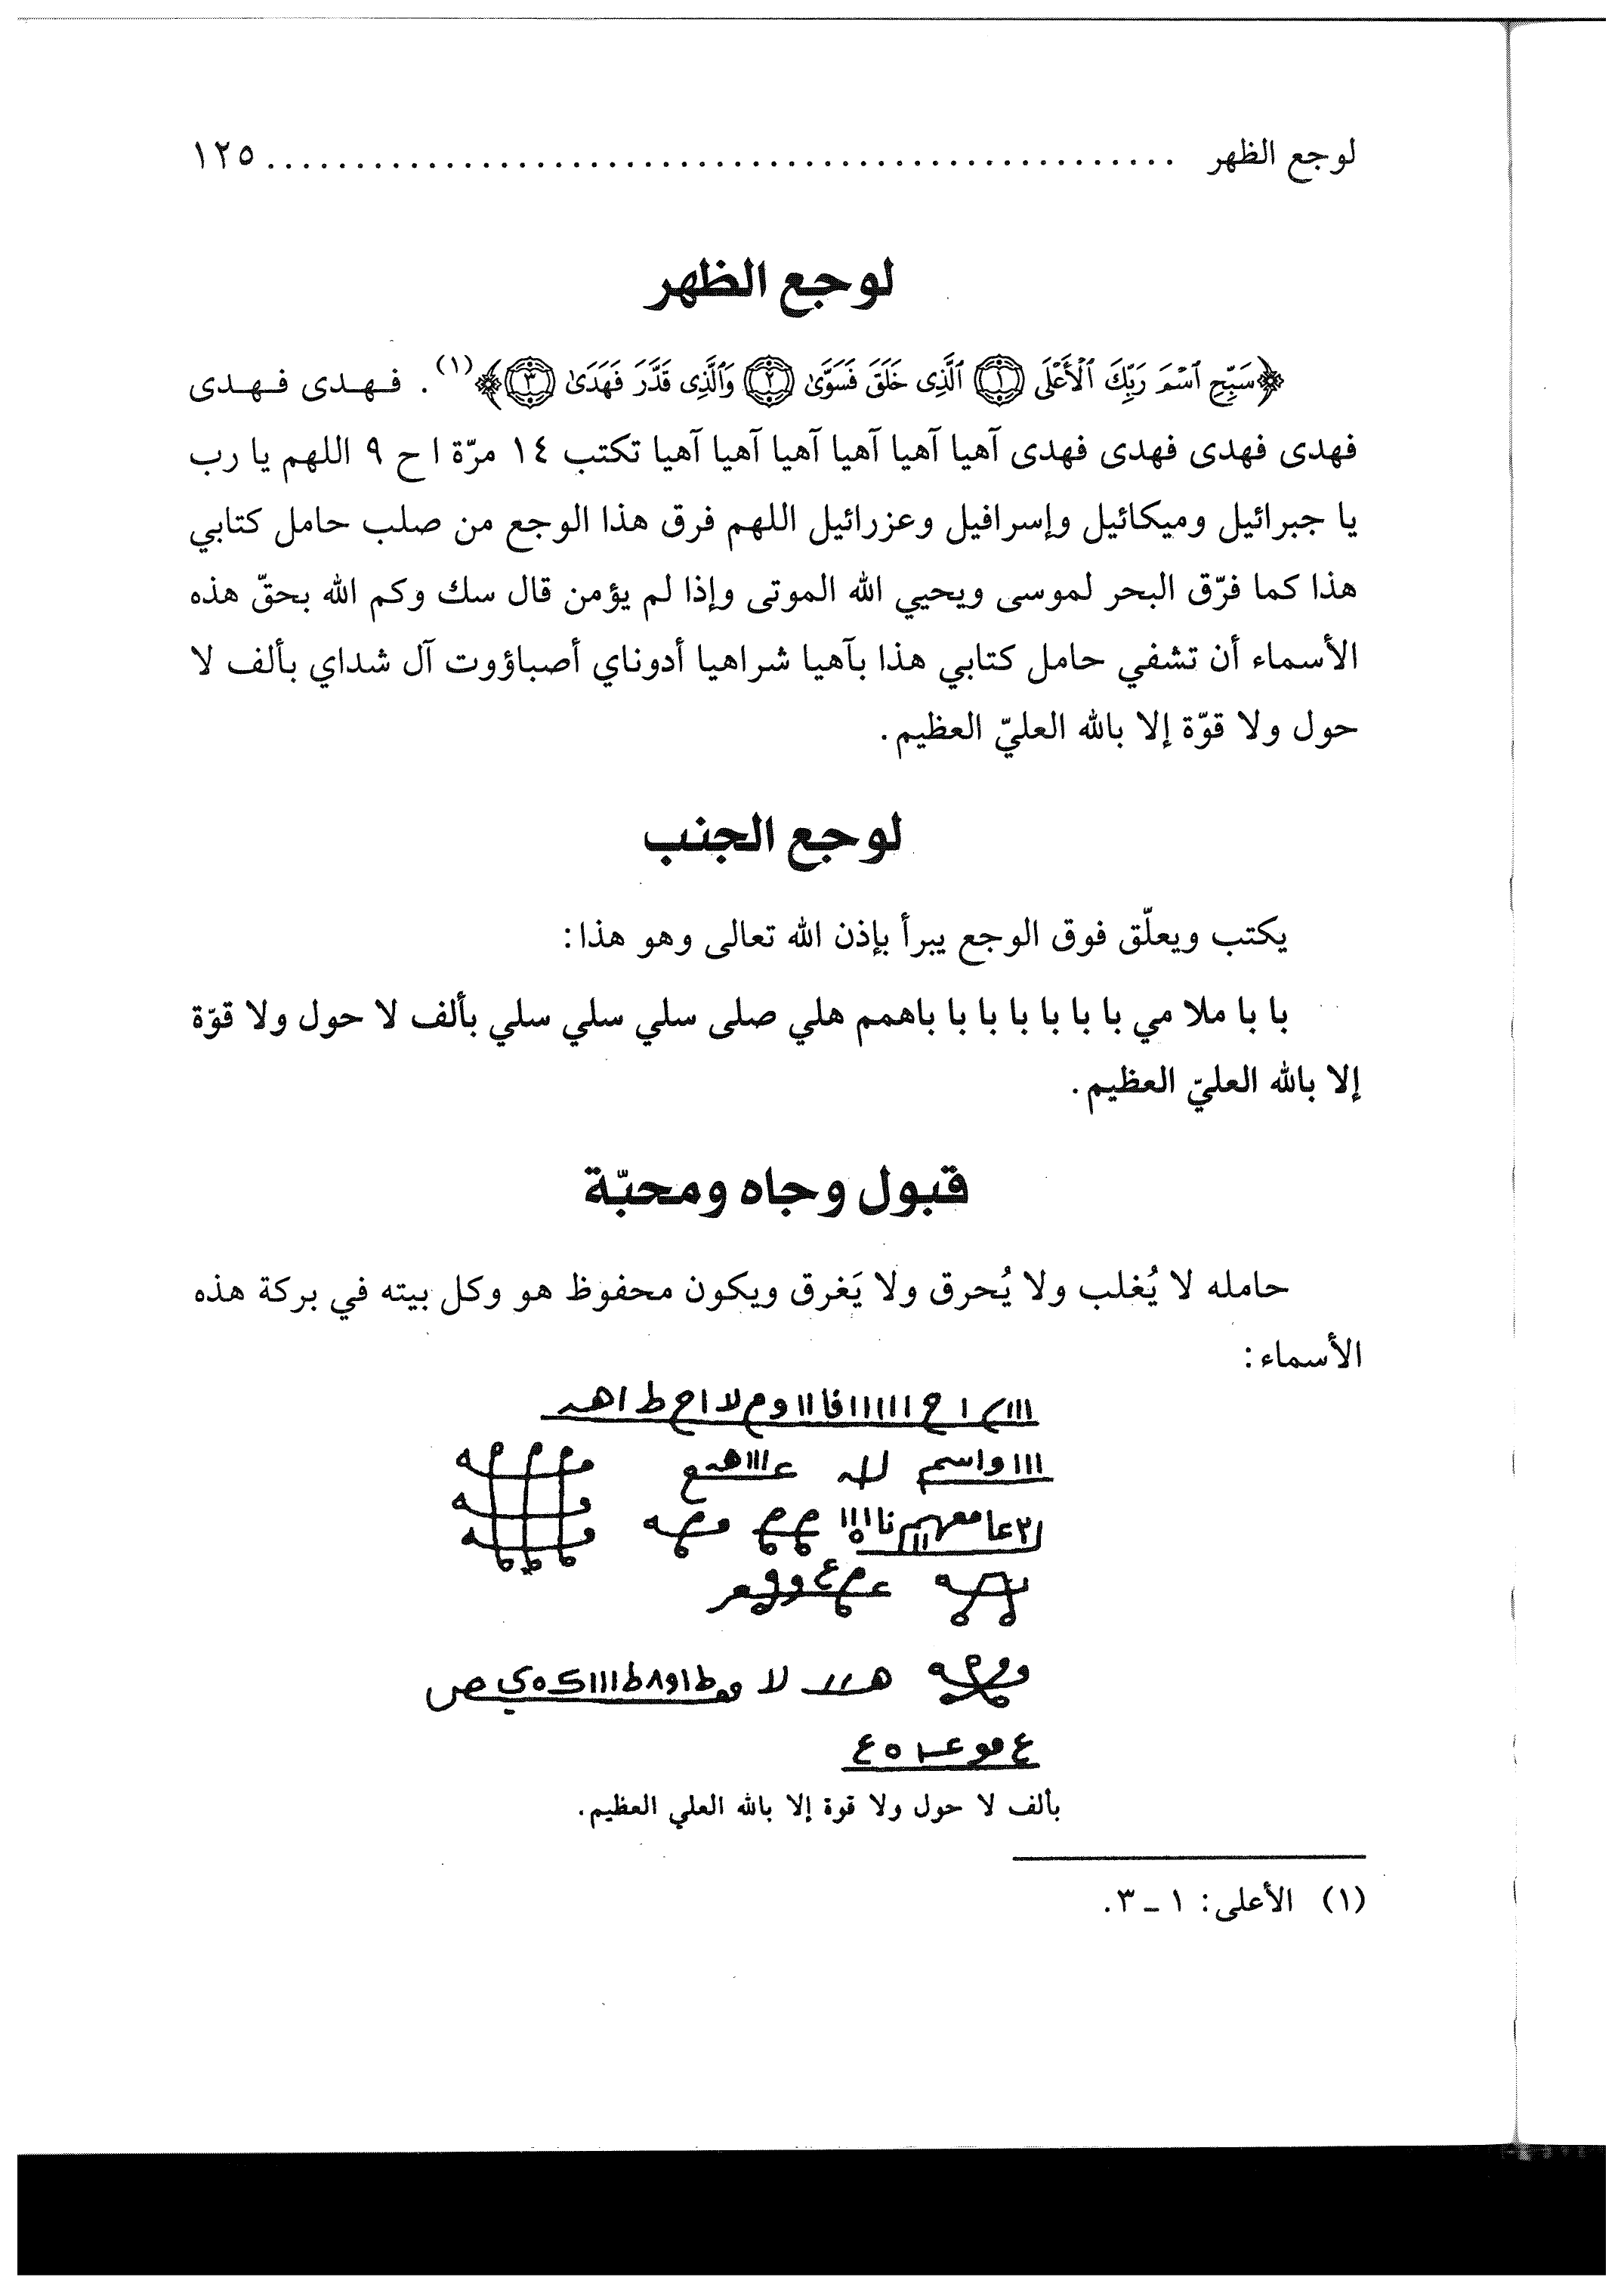 لوجع الظهر ................................................ ١٢٥
لوجع الظهر
﴿سَبِّحِ ٱسْمَ رَبِّكَ ٱلْأَعْلَى ۝١ ٱلَّذِى خَلَقَ فَسَوَّىٰ ۝٢ وَٱلَّذِى قَدَّرَ فَهَدَىٰ ۝٣﴾(١). فهدى فهدى
فهدى فهدى فهدى فهدى آهيا آهيا آهيا آهيا آهيا آهيا تكتب ١٤ مرّة ا ح ٩ اللهم يا رب
يا جبرائيل وميكائيل وإسرافيل وعزرائيل اللهم فرق هذا الوجع من صلب حامل كتابي
هذا كما فرّق البحر لموسى ويحيي الله الموتى وإذا لم يؤمن قال سك وكم الله بحقّ هذه
الأسماء أن تشفي حامل كتابي هذا بآهيا شراهيا أدوناي أصباؤوت آل شداي بألف لا
حول ولا قوّة إلا بالله العليّ العظيم.
لوجع الجنب
يكتب ويعلّق فوق الوجع يبرأ بإذن الله تعالى وهو هذا:
با با ملا مي با با با با با با باهمم هلي صلى سلي سلي سلي بألف لا حول ولا قوّة
إلا بالله العليّ العظيم.
قبول وجاه ومحبّة
حامله لا يُغلب ولا يُحرق ولا يَغرق ويكون محفوظ هو وكل بيته في بركة هذه
الأسماء:
بألف لا حول ولا قوة إلا بالله العلي العظيم.
(١) الأعلى: ١ ـ ٣.